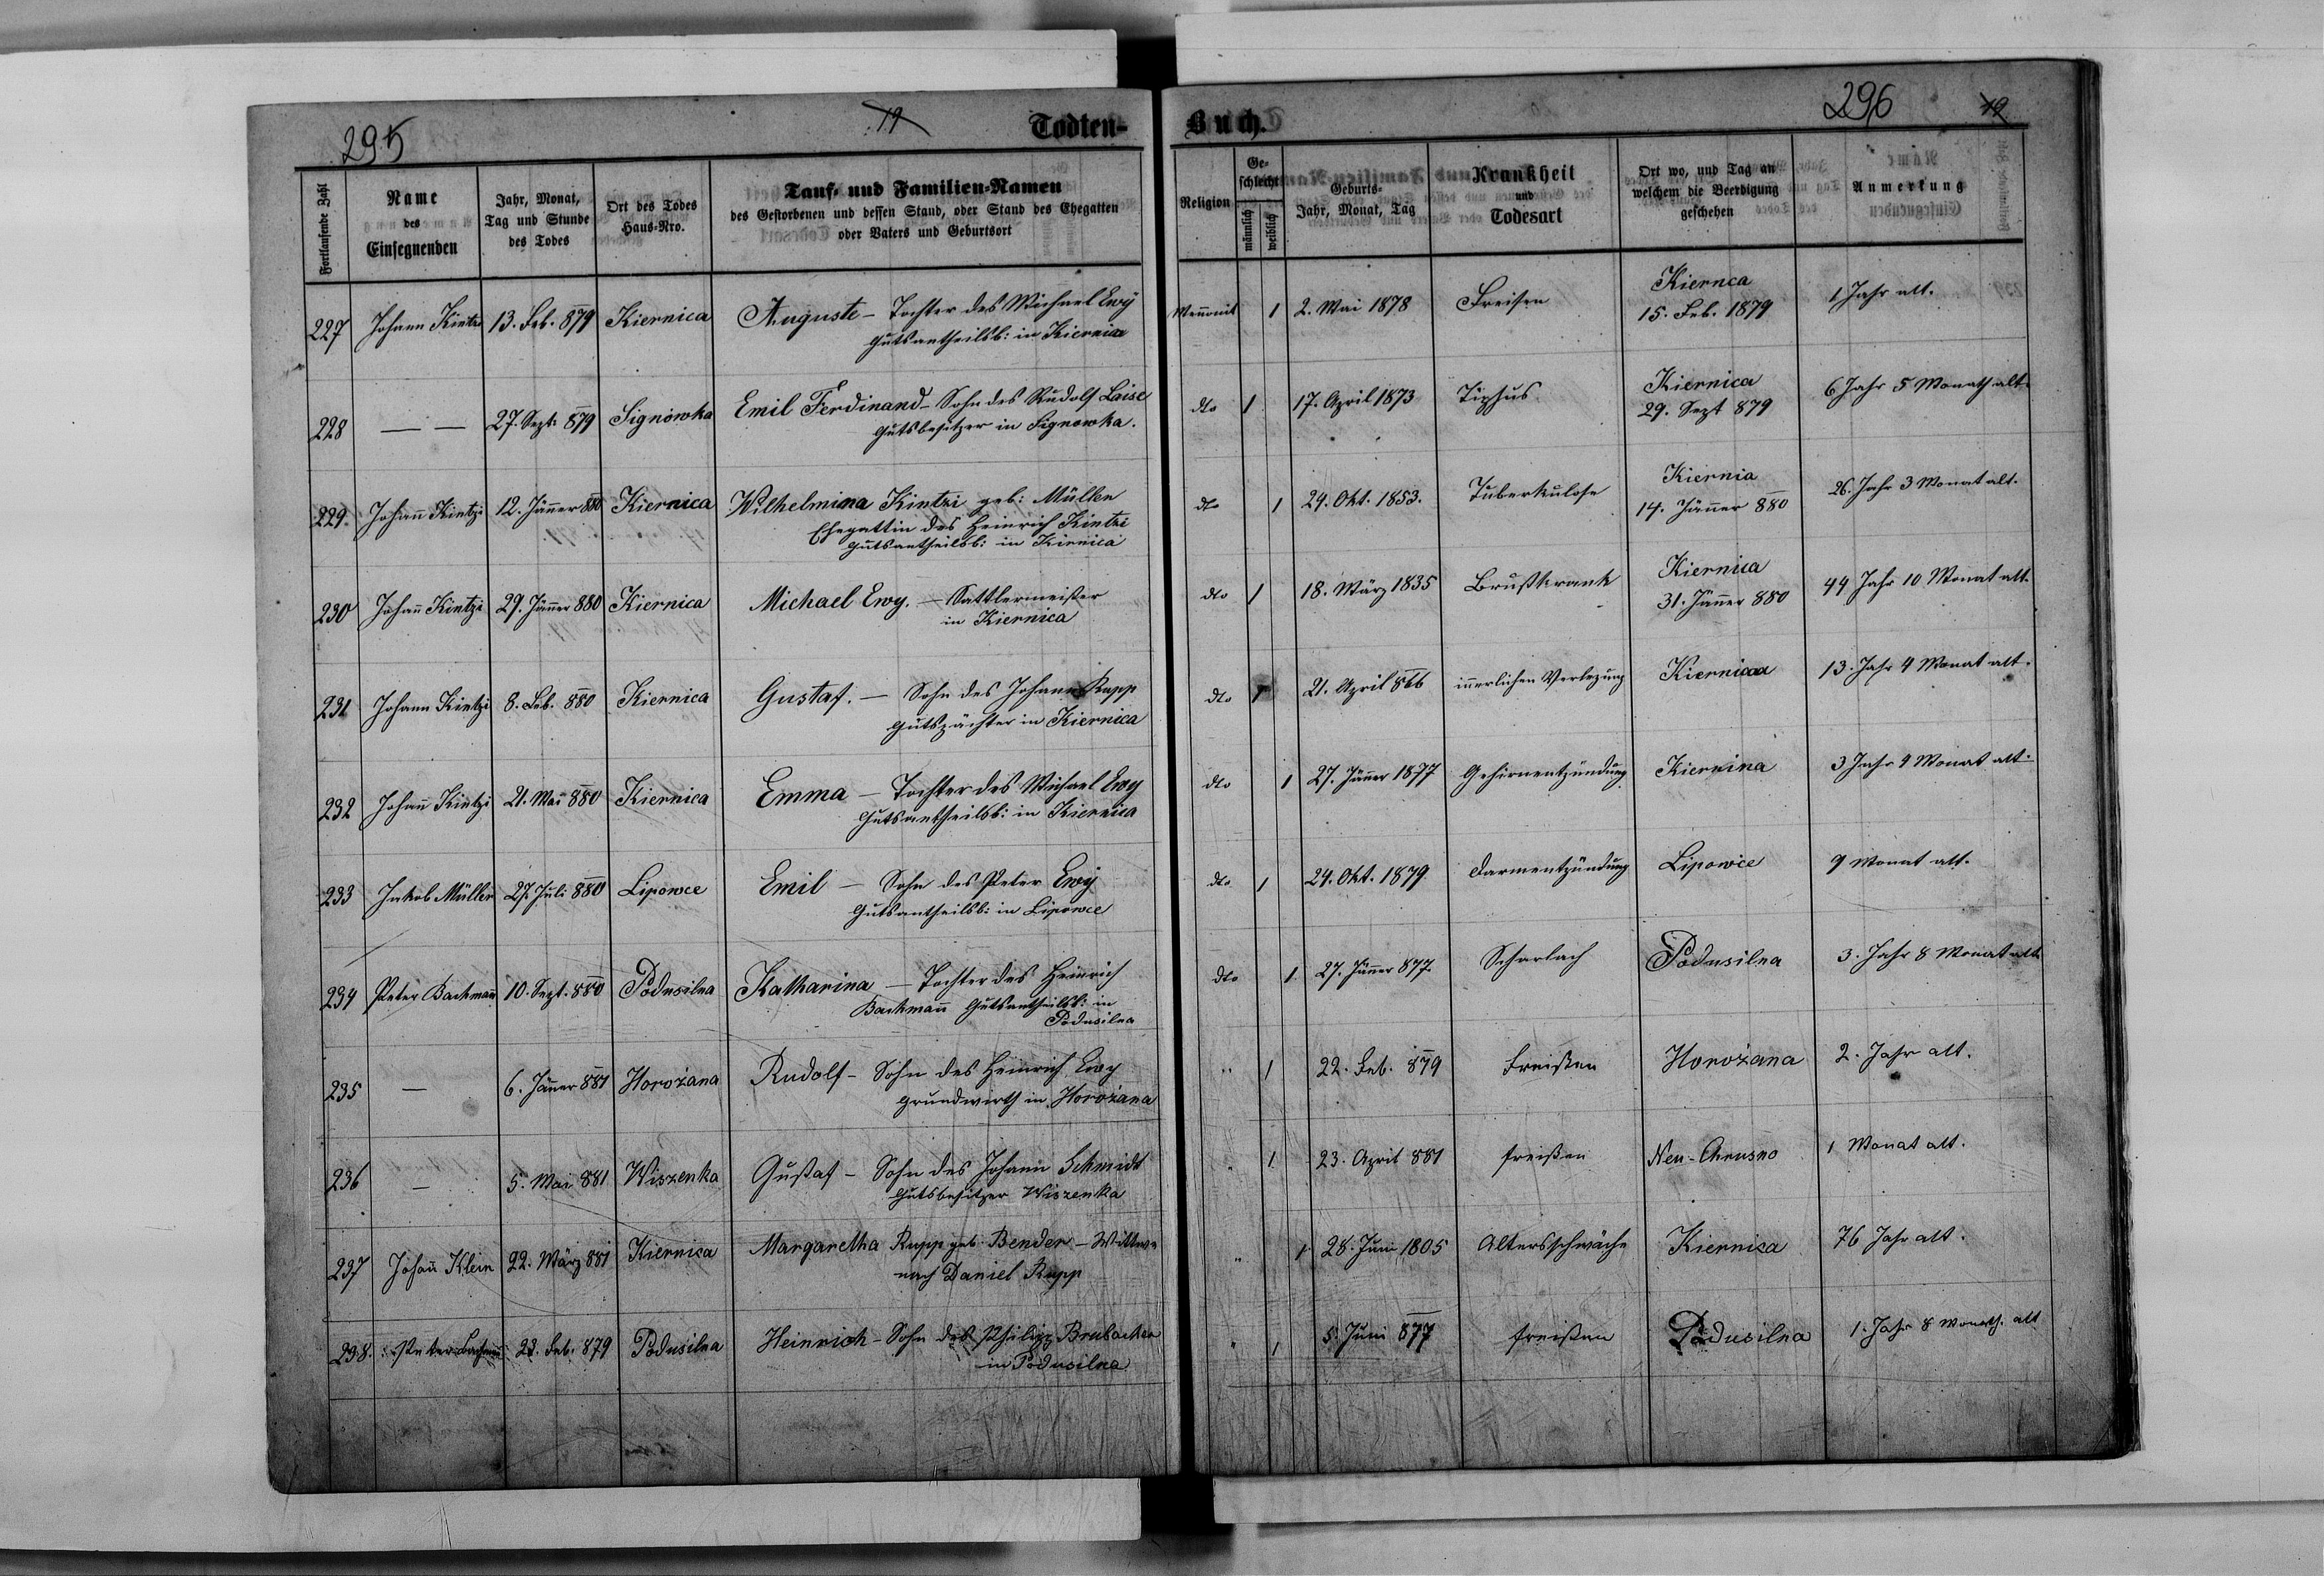 295
19
Todten-
Fortlaufende Zahl
Name des Einsegnenden
Jahr, Monat, Tag und Stunde des Todes
Ort des Todes Haus-Nro.
Tauf- und Familien-Namen
des Gestorbenen und dessen Stand, oder Stand des Ehegatten
oder Vaters und Geburtsort
Buch.
296
19
Religion
Geschlecht
männlich
weiblich
Geburts-
Jahr, Monat, Tag
Krankheit und Todesart
Ort wo, und Tag an welchem die Beerdigung geschehen
Anmerkung
227 Johann Kintzi 13. Feb. 879 Kiernica Auguste – Tochter des Michael Ewÿ
Gutsantheilsb: in Kiernica
Mennonit 1 2. Mai 1878 Freisen Kiernca 1 Jahr alt.
15. Feb. 1879
228 — — 27. Sept. 879 Signówka Emil Ferdinand – Sohn des Rudolf Laise
Gutsbesitzer in Signowka.
dto 1 17. April 1873 Tiphus Kiernica 6 Jahr 5 Monath alt.
29. Sept 879
229. Johann Kintzi 12. Jänner 880 Kiernica Wilhelmina Kintzi geb: Müller
Ehegattin des Heinrich Kintzi
Gutsantheilsb: in Kirnica
dto 1 24. Okt. 1853. Tuberkulose Kiernia 26. Jahr 3 Monat alt.
14. Jänner 880
230 Johann Kintzi 29. Jänner 880 Kiernica Michael Ewy. – Sattlermeister
in Kiernica
dto 1 18. März 1835 Brustkrank Kiernica 44 Jahr 10 Monat alt.
31. Jänner 880
231 Johann Kintzi 8. Feb. 880 Kiernica Gustaf. – Sohn des Johann Rupp
Gutspächter in Kiernica
dto 1 21. April 866 innerlichen Verlezung Kiernicaa 13. Jahr 4 Monat alt.
232 Johann Kintzi 21. Mai 880 Kiernica Emma – Tochter des Michael Ewy
Gutsantheilsb: in Kiernica
dto 1 27. Jänner 1877 Gehirnentzündung Kiernina 3 Jahr 4 Monat alt.
233 Jakob Müller 27. Juli 880 Lipowce Emil – Sohn des Peter Ewÿ
Gutsantheilsb: in Lipowce
dto 1 24. Okt. 1879 Darmentzündung Lipowce 9 Monat alt.
234 Peter Bachmann 10. Sept. 880 Podusilna Katharina – Tochter des Heinrich
Bachmann Gutsantheilsb: in
Podusilna
dto 1. 27. Jänner 877. Scharlach Podusilna 3. Jahr 8 Monat alt
235 — 6. Jänner 881 Horożana Rudolf – Sohn des Heinrich Ewy
Grundwirth in Horożana
" 1 22. Feb. 879 Freißen Horożana 2. Jahr alt.
236 — 5. Mai 881 Wiszenka Gustaf – Sohn des Johann Schmidt
Gutsbesitzer Wiszenka
" 1 23. April 881 Freißen Neu-Chrusno 1 Monat alt.
237 Johann Klein 22. März 881 Kiernica Margaretha Rupp geb. Bender – Wittwe
nach Daniel Rupp
" 1 28. Juni 1805 Altersschwäche Kiernica 76 Jahr alt.
238. Peter Bachmann 23. Feb. 879 Podusilna Heinrich – Sohn des Philipp Brubacher
in Podusilna
" 1 5. Juni 877 Freißen Podusilna 1. Jahr 8 Monath. alt